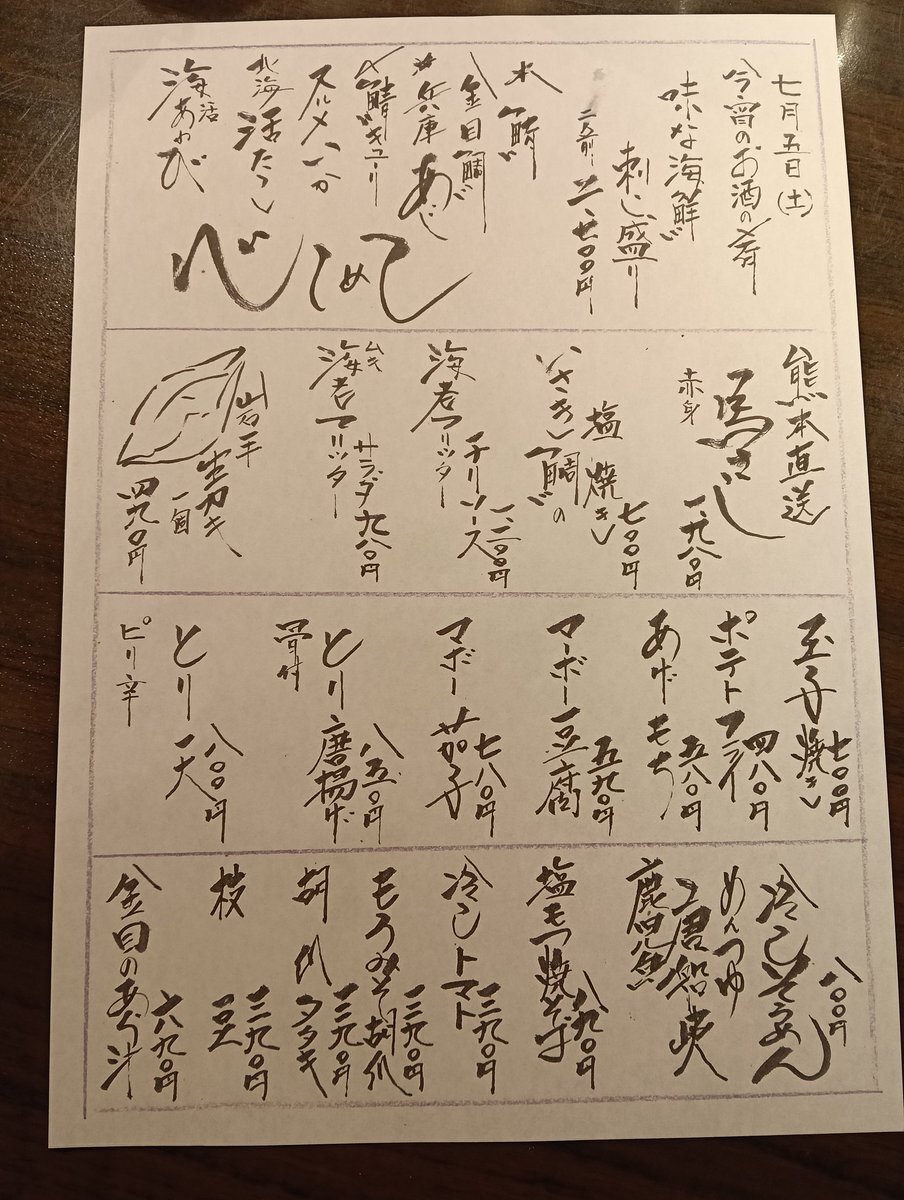 七月五日(土)
今宵のお酒の肴
味な海鮮
刺し盛り
二、七〇〇円
本鮪
金目鯛
兵庫あじ
〆鯖キューリ
スルメいか
北海活たこ
活あわび
熊本直送
馬さし
赤身
一、九八〇円
いさき一鯛の
塩焼き
七〇〇円
海老フリッター
チリソース
一、二〇〇円
ムキ
海老フリッター
サラダ九八〇円
岩手
生カキ
一個
四九〇円
玉子焼き
七〇〇円
ポテトフライ
四八〇円
あげもち
五八〇円
マーボー豆腐
五九〇円
マボー茄子
七八〇円
とり唐揚げ
骨付
八五〇円
とり天
八〇〇円
ピリ辛
冷しそうめん
八〇〇円
めんつゆ
鹿児島
塩もつ焼そば
八九〇円
冷しトマト
三九〇円
もろみそ胡瓜
三九〇円
胡瓜タタキ
三九〇円
枝豆
三九〇円
金目のあら汁
六九〇円